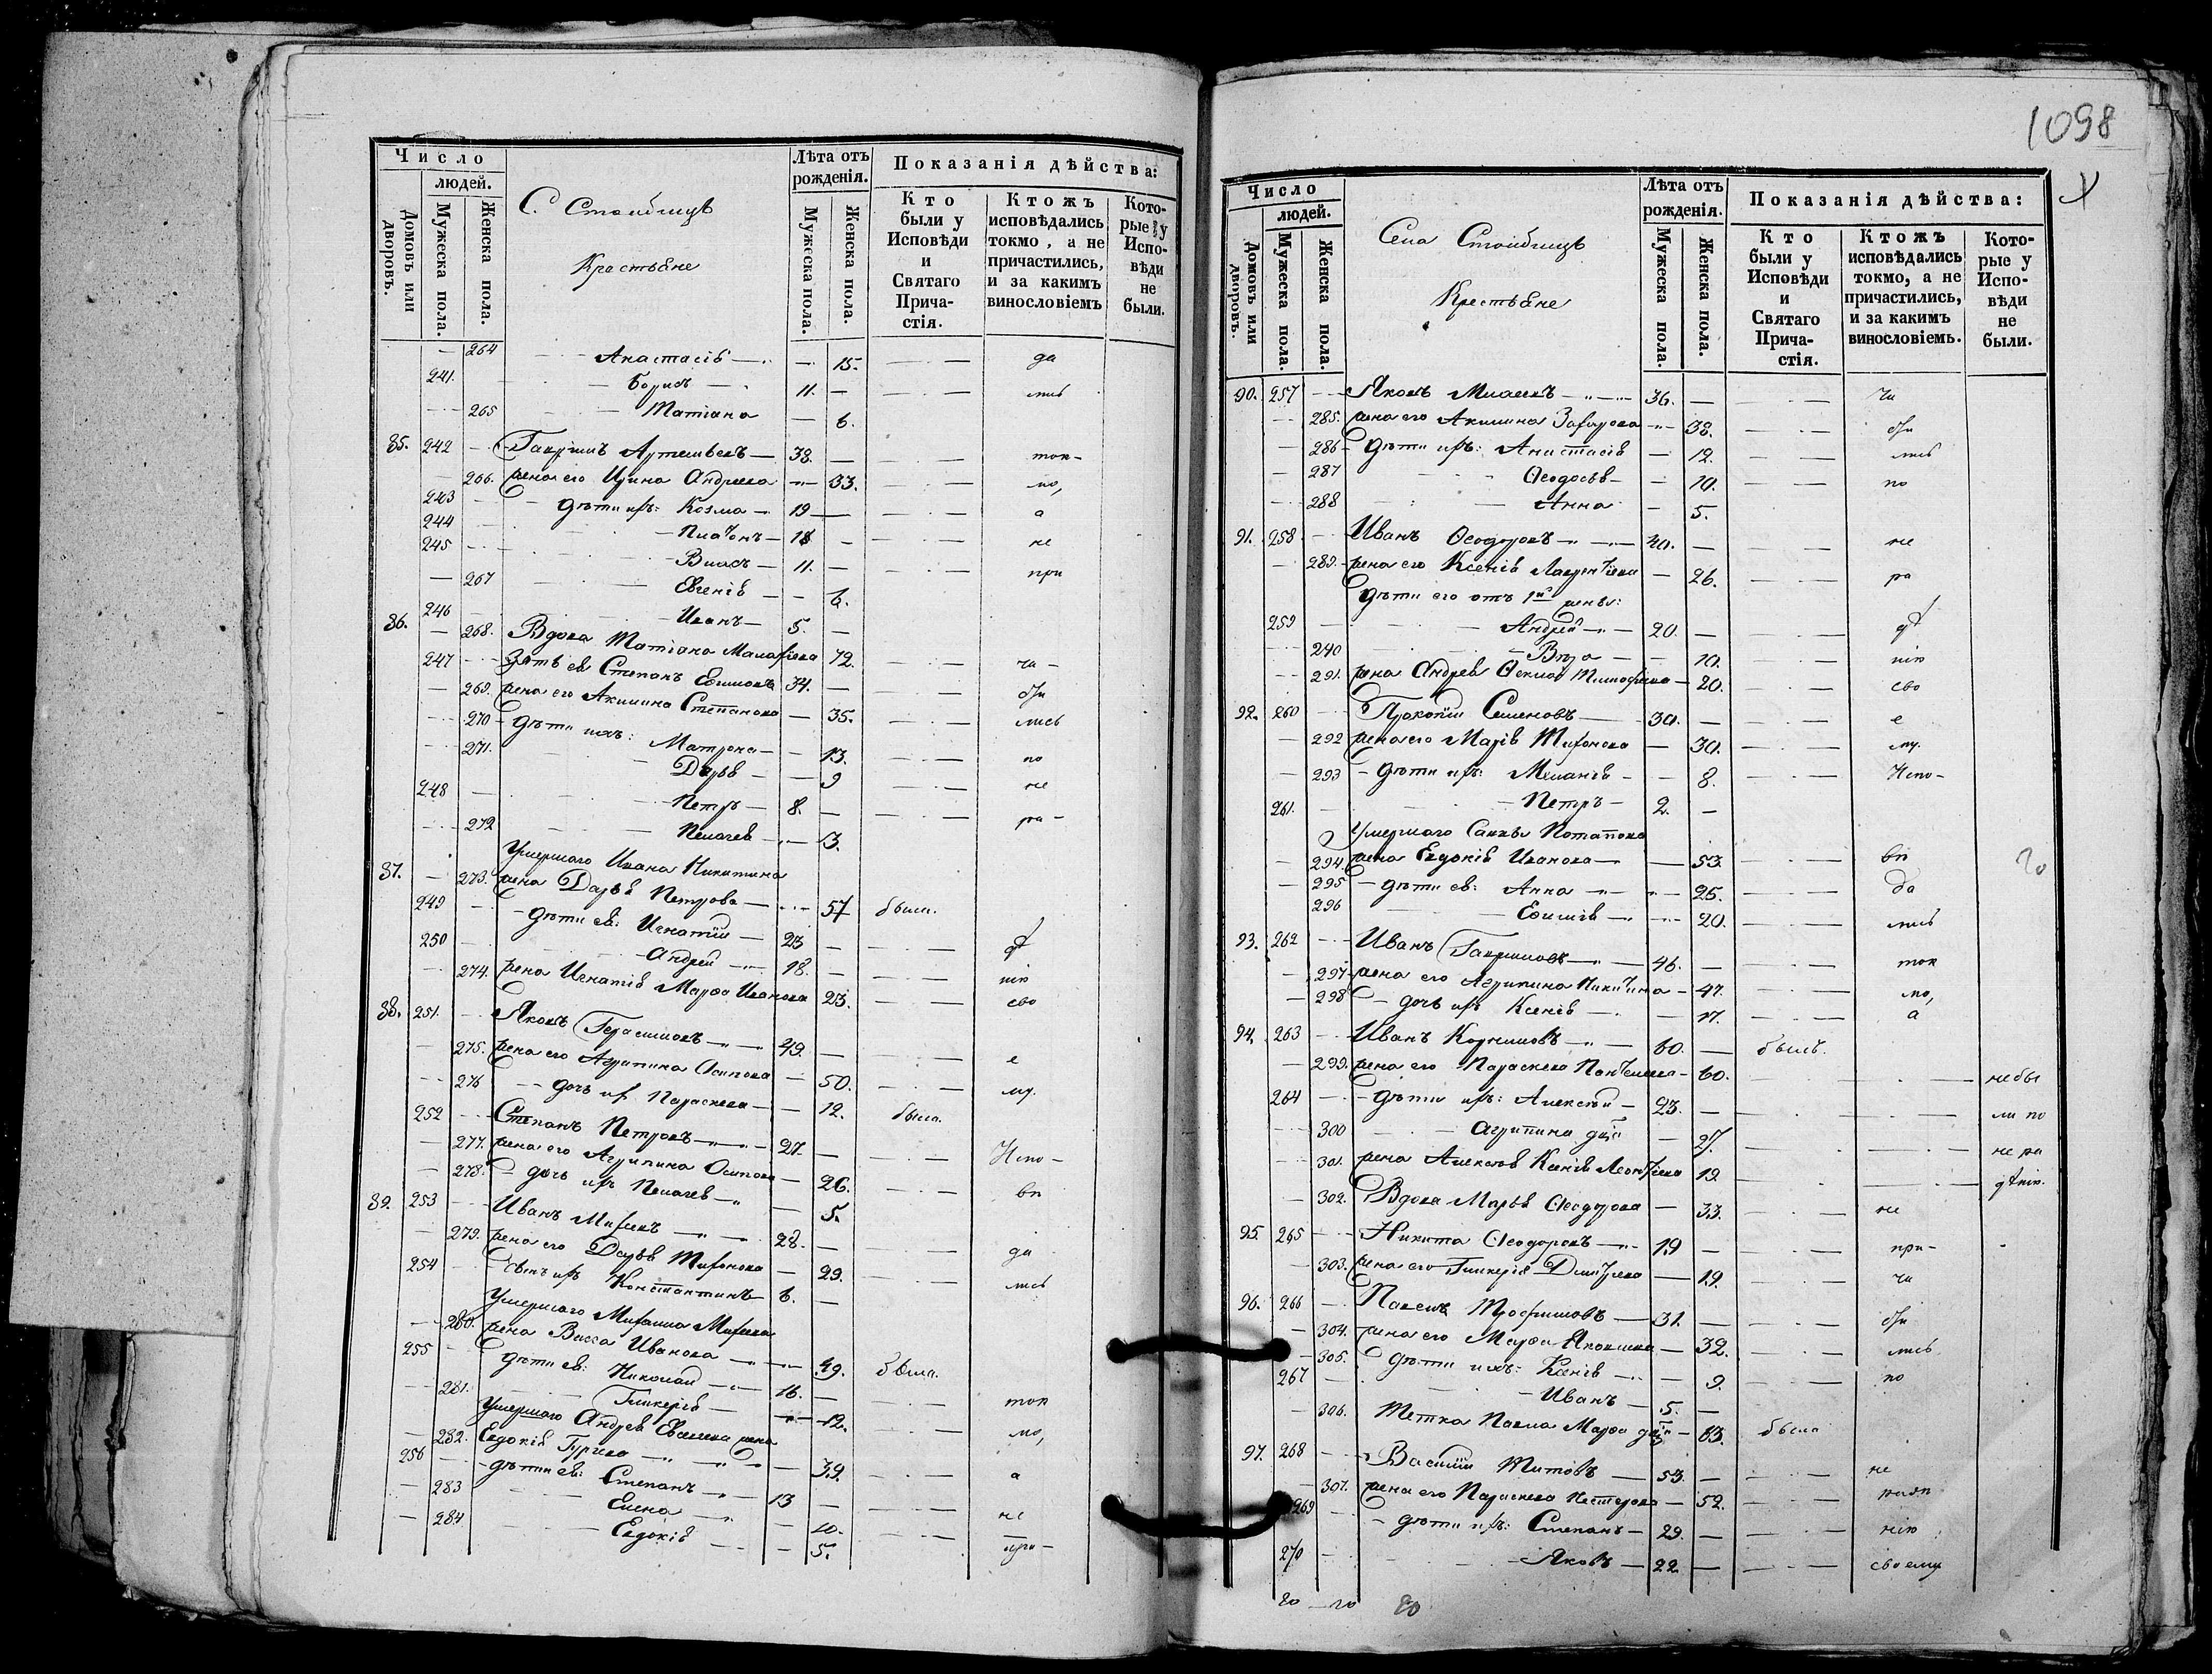 Число
людей.
Домовъ или дворовъ.
Мужеска пола.
Женска пола.
С. Стоибищъ
Крестьяне
Лѣта отъ рожденія.
Мужеска пола.
Женска пола.
Показанія дѣйства:
Кто были у Исповѣди и Святаго Причастія.
Ктожъ исповѣдались токмо, а не причастились, и за какимъ винословіемъ
Которые у Исповѣди не были.
264 Анастасія 15. да
241. Борисъ 11. лись
265 Татіана 6.
85. 242 Гавріилъ Артемьевъ 38. ток-
266. жена его Ирина Андреева 33. мо,
243 дѣти ихъ: Козма 19 а
244 Платонъ 18 не
245 Власъ 11. при
267 Евгенія 6.
246 Иванъ 5.
86. 268. Вдова Татіана Малафіева 72. ча-
247 Зять ея Степанъ Ефимовъ 34. сти
269. жена его Акилина Степанова 35. лись
270 дѣти ихъ: Матрона 13. по
271. Дарья 9 не
248 Петръ 8. ра-
272 Пелагея 3.
Умершаго Ивана Никитина
87. 273. жена Дарья Петрова 57 была.
249 дѣти ея: Игнатій 23 дѣ
250 Андрей 18. нію
274. жена Игнатія Марѳа Иванова 23. сво
88. 251. Яковъ Герасимовъ 49. е
275. жена его Агрипина Осипова 50. му.
276 дочь их Параскева 12. была.
252 Степанъ Петровъ 27. Испо-
277. жена его Агрипина Осипова 26. вѣ
278. дочь ихъ Пелагея 5.
89. 253 Иванъ Михеевъ 28. да
279. жена его Дарья Тихонова 29. лись
254 сынъ ихъ Константинъ 6.
Умершаго Михаила Михеева
280. жена Васса Иванова 49. была.
255 дѣти ея: Николай 16. ток
281. Гликерія 12. мо,
Умершаго Андрея Евсеева жена
282. Евдокія Гурьева 39. а
256 дѣти ея: Степанъ 13 не
283 Елена 10. при-
284 Евдокія 5.
1098
Число
людей.
Домовъ или дворовъ.
Мужеска пола.
Женска пола.
Села Стоибищъ
Крестьяне
Лѣта отъ рожденія.
Мужеска пола.
Женска пола.
Показанія дѣйства:
Кто были у Исповѣди и Святаго Причастія.
Ктожъ исповѣдались токмо, а не причастились, и за какимъ винословіемъ.
Которые у Исповѣди не были.
90. 257 Яковъ Михеевъ 36. ча
285. жена его Акилина Захарова 38. сти
286 дѣти ихъ: Анастасія 12. лись
287 Ѳеодосья 10. по
288 Анна 5.
91. 258 Иванъ Ѳеодоровъ 40. не
289. жена его Ксенія Лаврентіева 26. ра
дѣти его отъ 1й жены:
259 Андрей 20. дѣ
240 Вѣра 10. нію
291. жена Андрея Ѳекла Тимофеева 20. сво
92. 260 Прокопій Семеновъ 30. е
292 жена его Марія Тихонова 30. му.
293 дѣти ихъ: Меланія 8. Испо-
261. Петръ 2.
Умершаго Саввы Потапова
294. жена Евдокія Иванова 53. вѣ
295 дѣти ея: Анна 25. да
296 Ефимія 20. лись
93. 262 Иванъ Гавриловъ 46. ток
297. жена его Агрипина Никитина 47. мо,
298 дочь ихъ Ксенія 17. а
94. 263 Иванъ Корниловъ 60. былъ.
299. жена его Параскева Пантелеева 60. не бы
264 дѣти ихъ: Алексѣй 23. ли по
300 Агрипина 27. не ра
301. жена Алексѣя Ксенія Леонтіева 19. дѣнію.
302. Вдова Марья Ѳеодорова 33. не
95. 265 Никита Ѳеодоровъ 19 при-
303. жена его Гликерія Дмитріева 19. ча
96. 266 Павелъ Трофимовъ 31. сти
304. жена его Марѳа Яковлева 32. лись
305. дѣти ихъ: Ксенія 9. по
267 Иванъ 5.
306. Тетка Павла Марѳа 63. была
97. 268 Василій Титовъ 53. не
307. жена его Параскева Нестерова 52. радѣ
269 дѣти ихъ: Степанъ 29. нію
270 Яковъ 22. своему
20
20 20 20